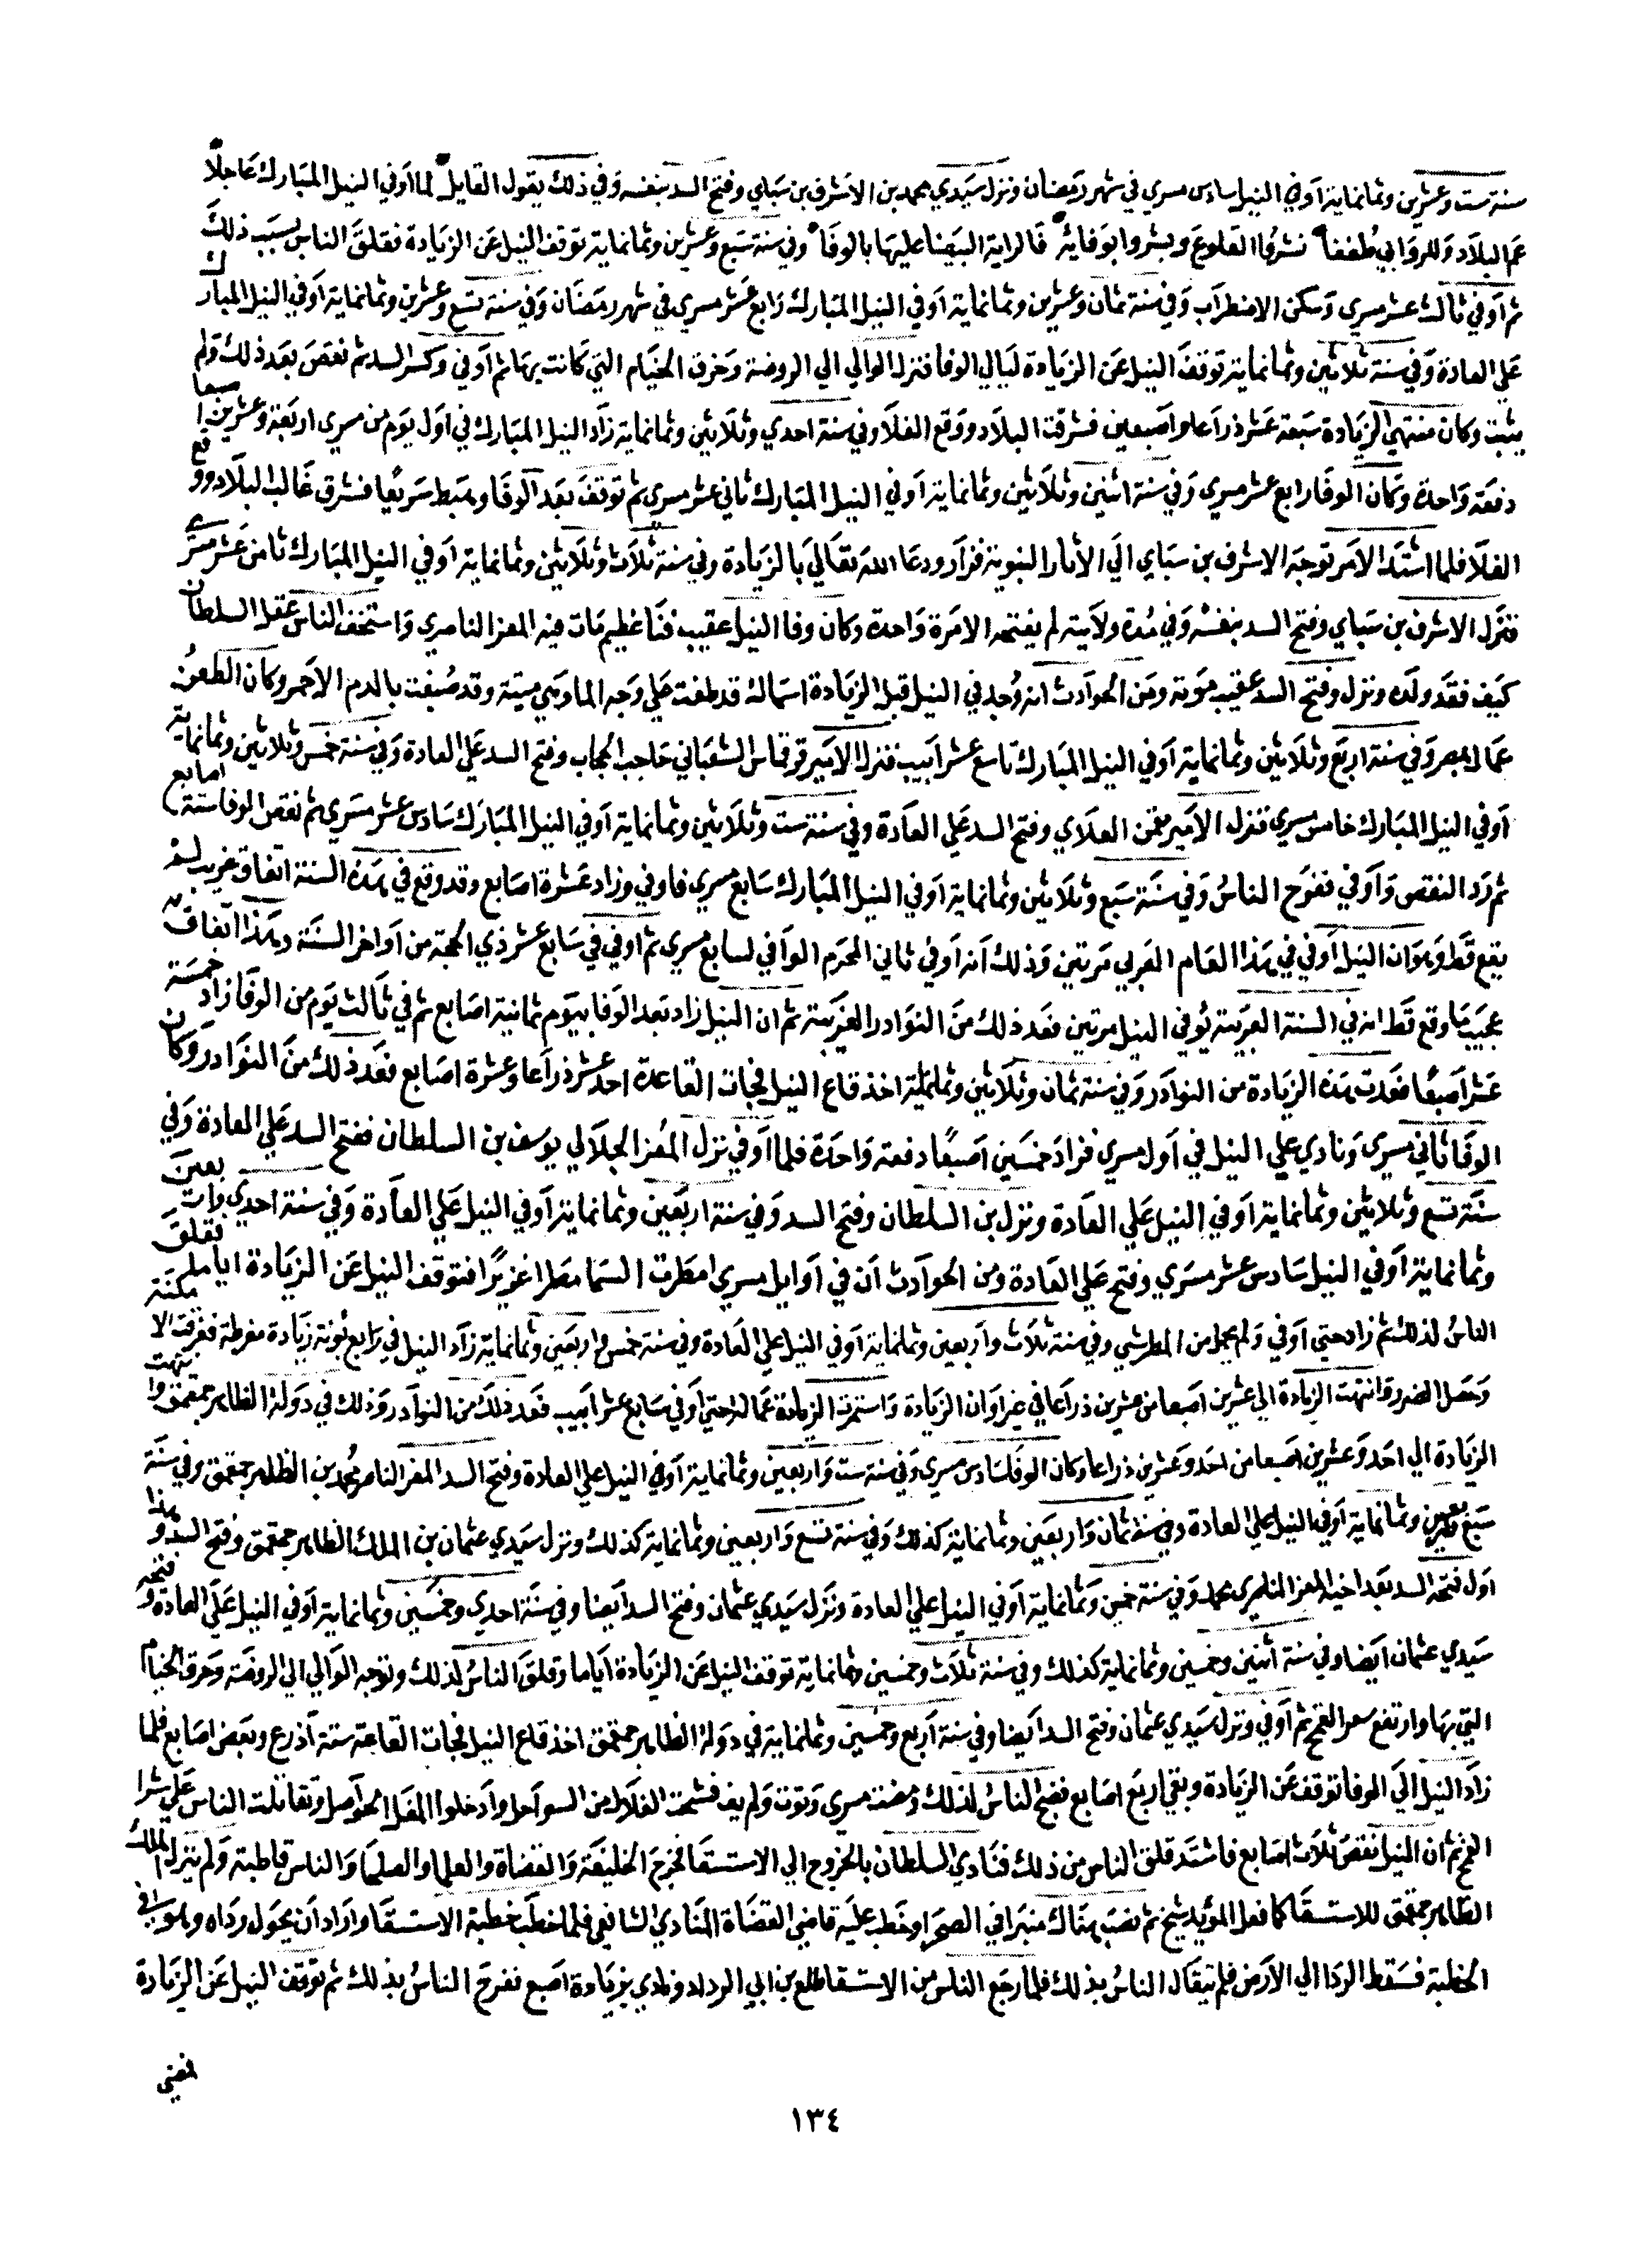 سنة ست وعشرين وثمانماية اوفي النيل سادس مسري في شهر رمضان ونزل سيدي محمد بن الاشرف بن سباي وفتح السد بنفسه وفي ذلك يقول القايل لما اوفي النيل المبارك عاجلا
عم البلاد وللروابي طففا نشروا القلوع وبشروا بوفايه فالراية البيضا عليها بالوفا وفي سنة سبع وعشرين وثمانماية توقف النيل عن الزيادة فقلق الناس بسبب ذلك
ثم اوفي ثالث عشر مسري وسكن الاضطراب وفي سنة ثمان وعشرين وثمانماية اوفي النيل المبارك رابع عشر مسري في شهر رمضان وفي سنة تسع وعشرين وثمانماية اوفي النيل المبارك
علي العادة وفي سنة ثلاثين وثمانماية توقف النيل عن الزيادة ليالي الوفا فنزل الوالي الي الروضة وحرق الخيام التي كانت بها ثم اوفي وكسر السد ثم نقص بعد ذلك ولم
يثبت وكان منتهي الزيادة سبعة عشر ذراعا واصبعين فشرقت البلاد ووقع الغلا وفي سنة احدي وثلاثين وثمانماية زاد النيل المبارك في اول يوم من مسري اربعة وعشرين اصبعا
دفعة واحدة وكان الوفا رابع عشر مسري وفي سنة اثنين وثلاثين وثمانماية اوفي النيل المبارك ثاني عشر مسري ثم توقف بعد الوفا وهبط سريعا فشرق غالب البلاد ووقع
الغلا فلما اشتد الامر توجه الاشرف بن سباي الي الاثار النبوية فزار ودعا الله تعالي بالزيادة وفي سنة ثلاث وثلاثين وثمانماية اوفي النيل المبارك ثامن عشر مسري
فنزل الاشرف بن سباي وفتح السد بنفسه وفي مدة ولايته لم يفتحه الا مرة واحدة وكان وفا النيل عقيب فنا عظيم مات فيه المعز الناصري واستخف الناس عقل السلطان
كيف فقد ولده ونزل وفتح السد عقيب موته ومن الحوادث انه وجد في النيل قبل الزيادة اسماك قد طفت علي وجه الما وهي ميتة وقد صبغت بالدم الاحمر وكان الطعن
عمال بمصر وفي سنة اربع وثلاثين وثمانماية اوفي النيل المبارك تاسع عشر ابيب فنزل الامير قرقماس الشعباني حاجب الحجاب وفتح السد علي العادة وفي سنة خمس وثلاثين وثمانماية
اوفي النيل المبارك خامس مسري فنزل الامير جقمق العلاي وفتح السد علي العادة وفي سنة ست وثلاثين وثمانماية اوفي النيل المبارك سادس عشر مسري ثم نقص الوفا ستة اصابع
ثم رد النقص واوفي ففرح الناس وفي سنة سبع وثلاثين وثمانماية اوفي النيل المبارك سابع مسري فاوفي وزاد عشرة اصابع وقد وقع في هذه السنة اتفاق غريب لم
يقع قط وهو ان النيل اوفي في هذا العام العربي مرتين وذلك انه اوفي ثاني المحرم الوافي لسابع مسري ثم اوفي في سابع عشر ذي الحجة من اواخر السنة وهذا اتفاق
عجيب ما وقع قط انه في السنة العربية يوفي النيل مرتين فعد ذلك من النوادر الغريبة ثم ان النيل زاد بعد الوفا بيوم ثمانية اصابع ثم في ثالث يوم من الوفا زاد خمسة
عشر اصبعا فعدت هذه الزيادة من النوادر وفي سنة ثمان وثلاثين وثمانماية اخذ قاع النيل فجات القاعدة احد عشر ذراعا وعشرة اصابع فعد ذلك من النوادر وكان
الوفا ثاني مسري ونادي علي النيل في اول مسري فزاد خمسين اصبعا دفعة واحدة فلما اوفي نزل المقر الجلالي يوسف بن السلطان ففتح السد علي العادة وفي
سنة تسع وثلاثين وثمانماية اوفي النيل علي العادة ونزل بن السلطان وفتح السد وفي سنة اربعين وثمانماية اوفي النيل علي العادة وفي سنة احدي واربعين
وثمانماية اوفي النيل سادس عشر مسري وفتح علي العادة ومن الحوادث ان في اوايل مسري امطرت السما مطرا غزيرا فتوقف النيل عن الزيادة اياما فقلق
الناس لذلك ثم زاد حتي اوفي ولم يحصل من المطر شي وفي سنة ثلاث واربعين وثمانماية اوفي النيل علي العادة وفي سنة خمس واربعين وثمانماية زاد النيل في رابع بونة زيادة مفرطة فغرقت الامكنة
وحصل الضرر وانتهت الزيادة الي عشرين اصبعا من عشرين ذراعا في غير اوان الزيادة واستمرت الزيادة عمالة حتي اوفي سابع عشر ابيب فعد ذلك من النوادر وذلك في دولة الظاهر جقمق وانتهت
الزيادة الي احد وعشرين اصبعا من احد وعشرين ذراعا وكان الوفا سادس مسري وفي سنة ست واربعين وثمانماية اوفي النيل علي العادة وفتح السد المقر الناصر محمد بن الظاهر جقمق وفي سنة
سبع واربعين وثمانماية اوفي النيل علي العادة وفي سنة ثمان واربعين وثمانماية كذلك وفي سنة تسع واربعين وثمانماية كذلك ونزل سيدي عثمان بن الملك الظاهر جقمق وفتح السد وهذا
اول فتحه السد بعد اخيه المقر الناصري محمد وفي سنة خمسين وثمانماية اوفي النيل علي العادة ونزل سيدي عثمان وفتح السد ايضا وفي سنة احدي وخمسين وثمانماية اوفي النيل علي العادة وفتحه
سيدي عثمان ايضا وفي سنة اثنين وخمسين وثمانماية كذلك وفي سنة ثلاث وخمسين وثمانماية توقف النيل عن الزيادة اياما وقلق الناس لذلك وتوجه الوالي الي الروضة وحرق الخيام
التي بها وارتفع سعر القمح ثم اوفي ونزل سيدي عثمان وفتح السد ايضا وفي سنة اربع وخمسين وثمانماية في دولة الظاهر جقمق اخذ قاع النيل فجات القاعة ستة اذرع وبعض اصابع فلما
زاد النيل الي الوفا توقف عن الزيادة وبقي اربع اصابع فضج الناس لذلك ومضت مسري وتوت ولم يف فشحت الغلال من السواحل وادخلوا المغل الحواصل وتقاتلت الناس علي شرا
القمح ثم ان النيل نقص ثلاث اصابع فاشتد قلق الناس من ذلك فنادي السلطان بالخروج الي الاستسقا فخرج الخليفة والقضاة والعلما والصلحا والناس قاطبة ولم ينزل الملك
الظاهر جقمق للاستسقا كما فعل المؤيد شيخ ثم نصب هناك منبرا في الصحرا وخطب عليه قاضي القضاة المناوي الشافعي فلما خطب خطبة الاستسقا واراد ان يحول رداه وهو في
الخطبة فسقط الردا الي الارض فلم يتفال الناس بذلك فلما رجع الناس من الاستسقا طلع بن ابي الرداد ونادي بزيادة اصبع ففرح الناس بذلك ثم توقف النيل عن الزيادة
فمضي
١٣٤